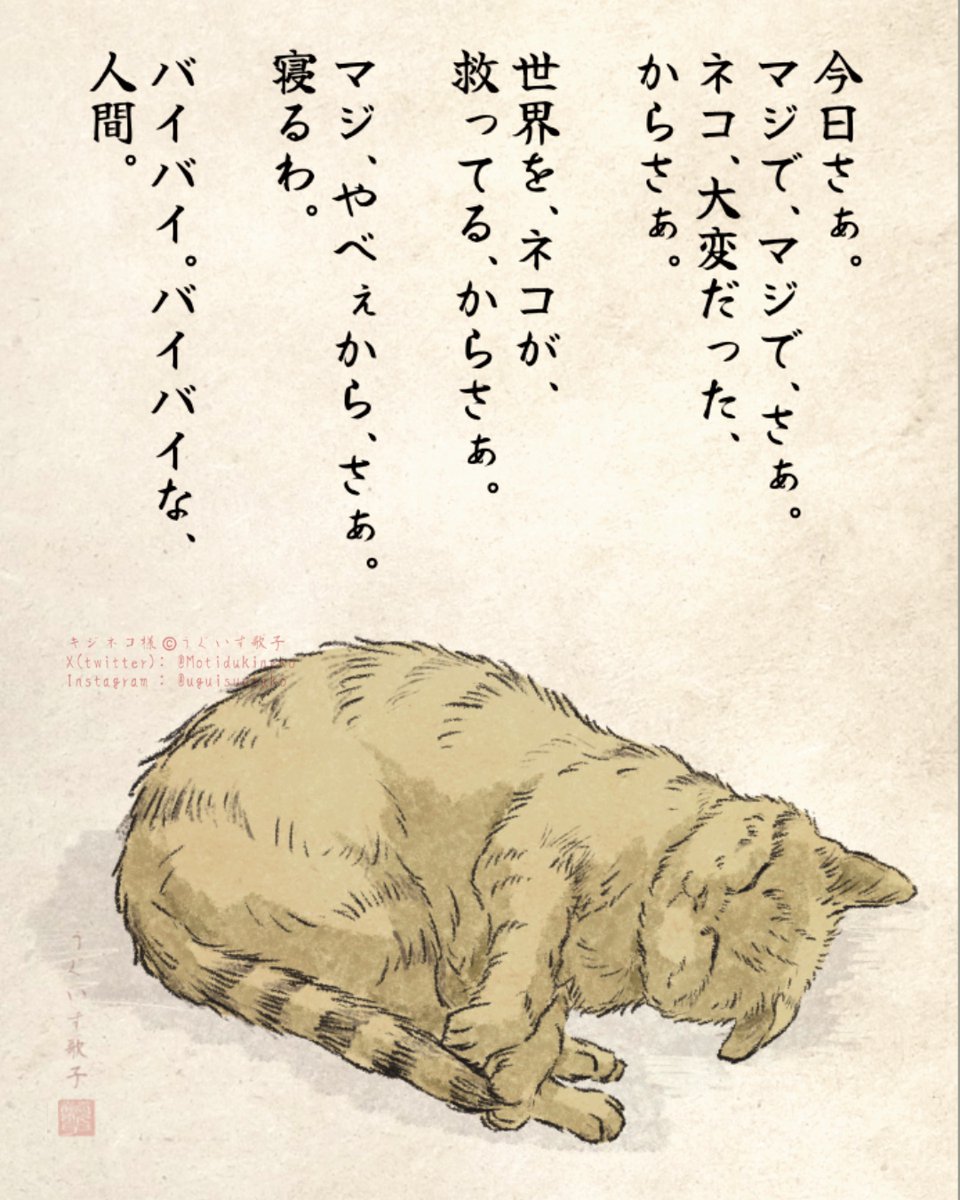 今日さぁ。
マジで、マジで、さぁ。
ネコ、大変だった、
からさぁ。
世界を、ネコが、
救ってる、からさぁ。
マジ、やべぇから、さぁ。
寝るわ。
バイバイ。バイバイな、
人間。
キジネコ様©うぐいす歌子
X(twitter): @Motidukineko
Instagram : @uguisuutako
うぐいす歌子